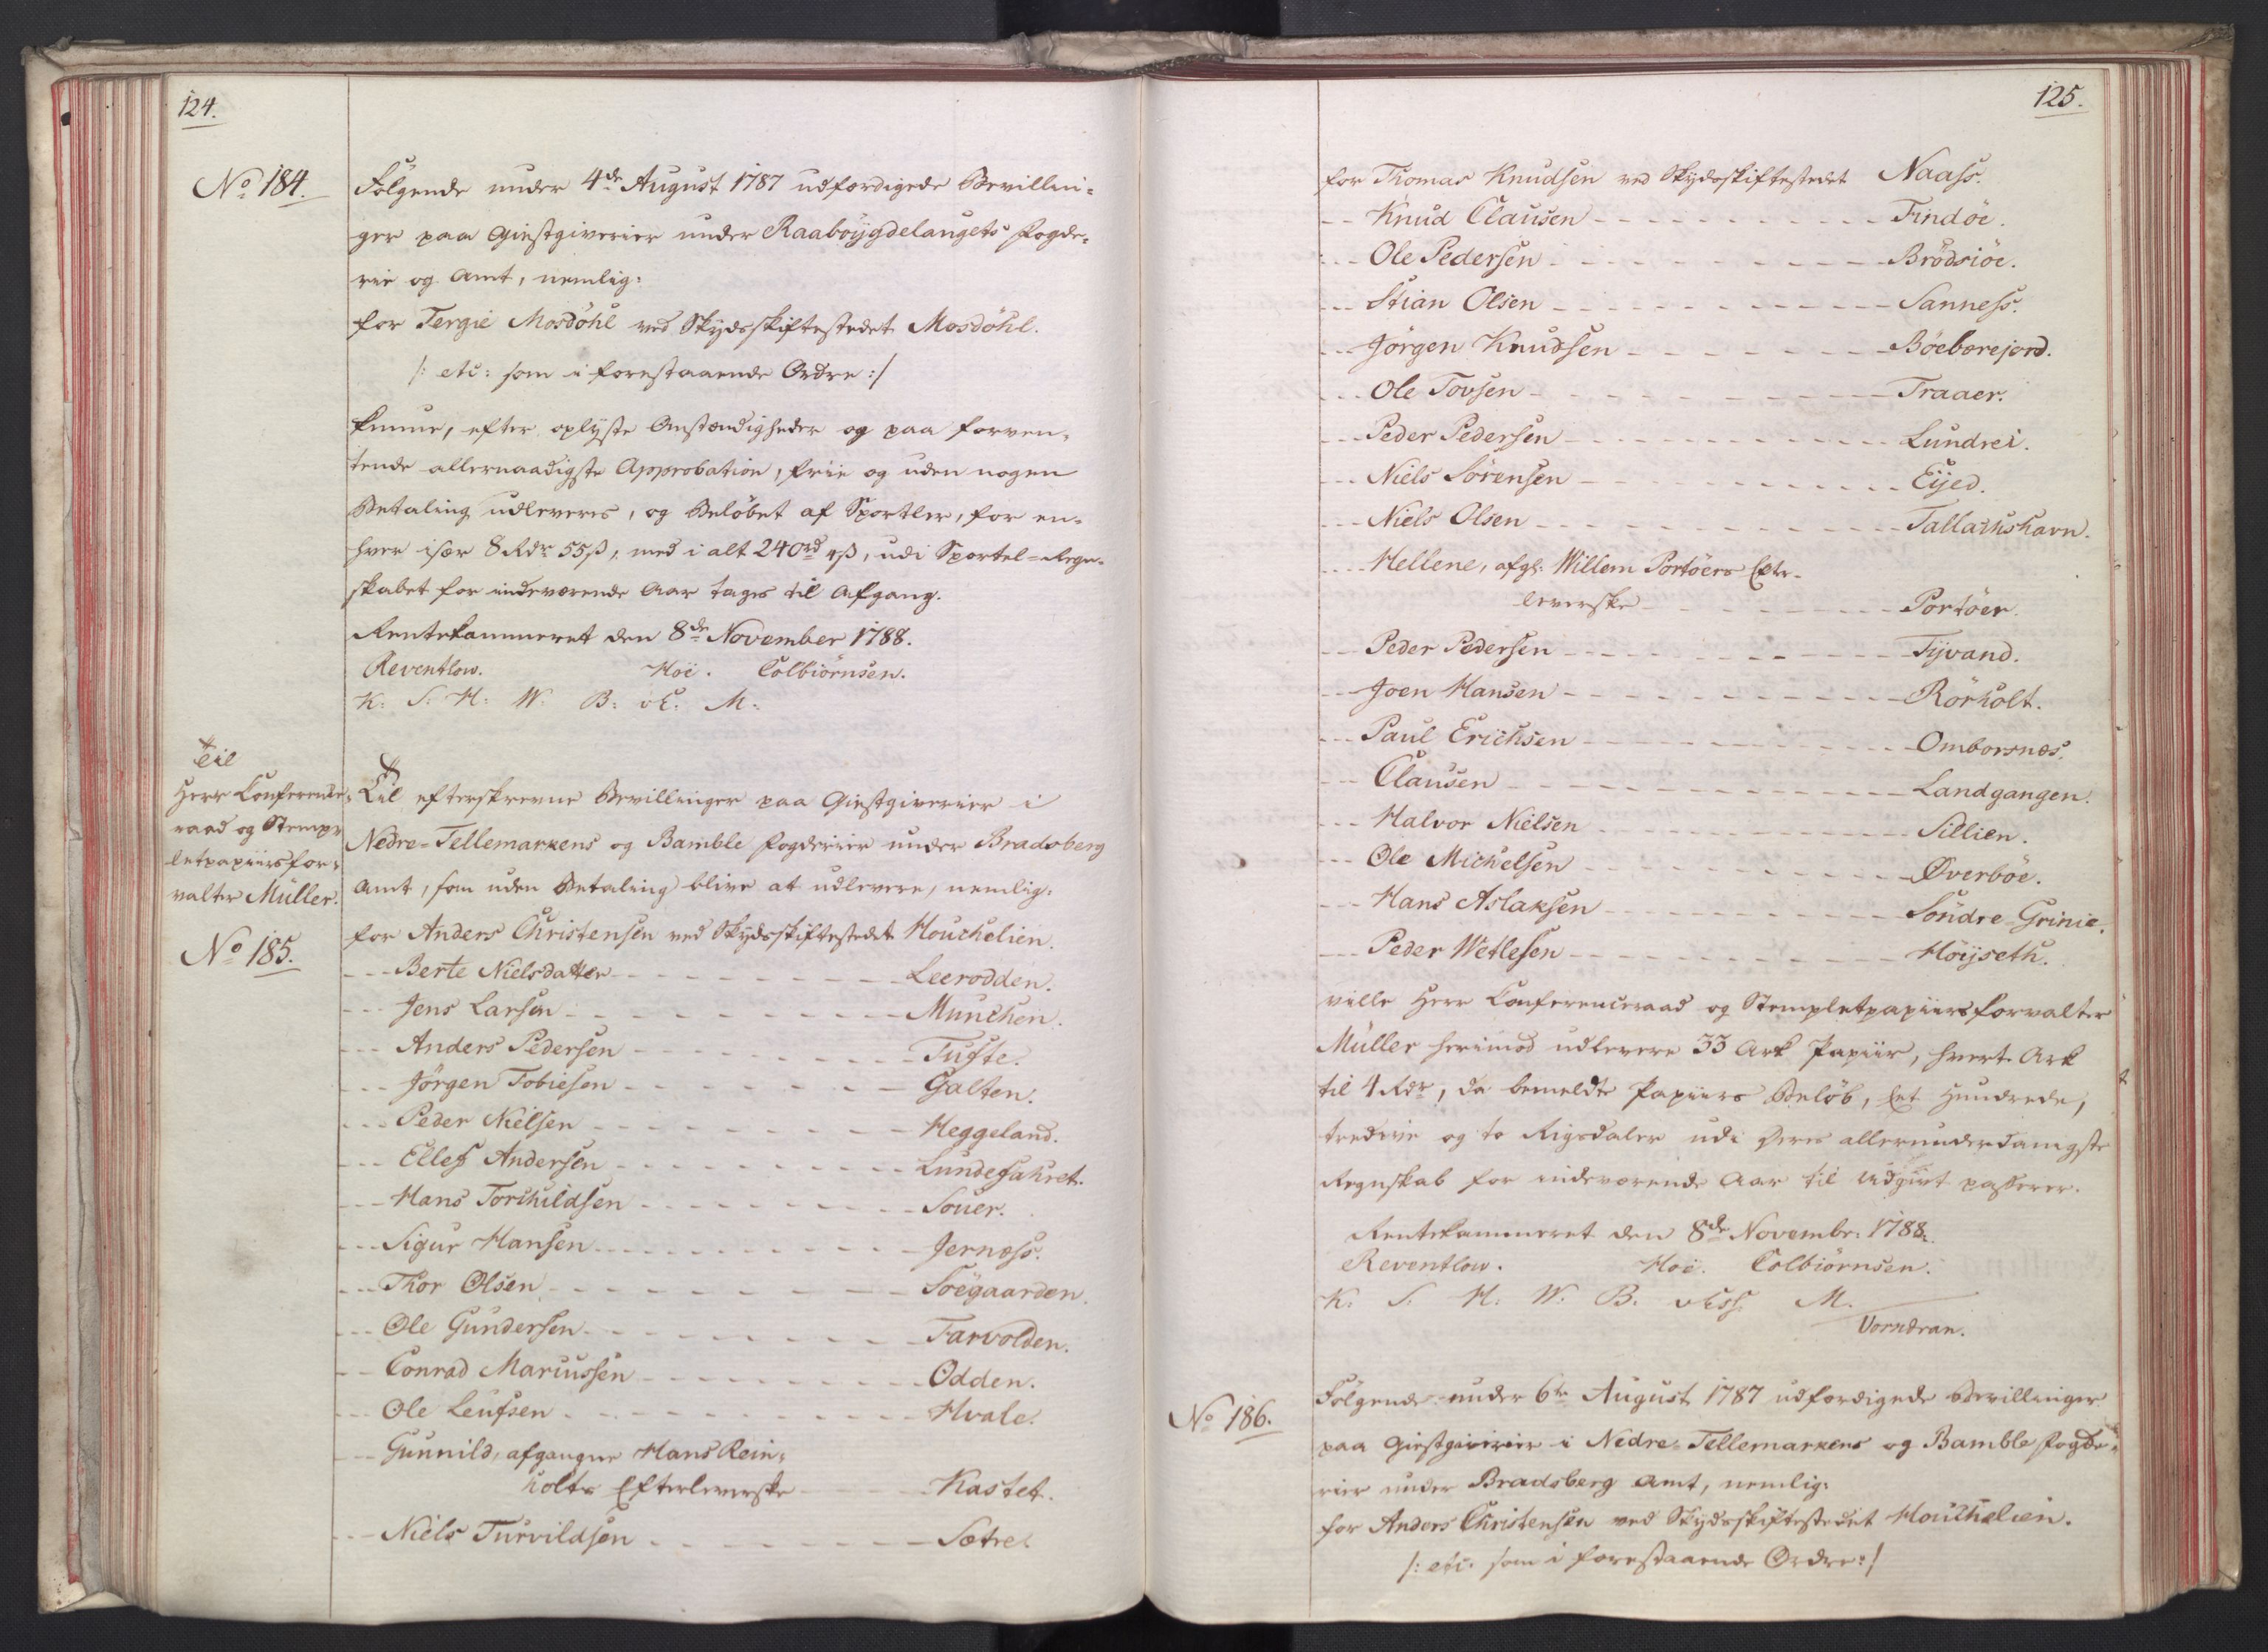 124.
No 184.
Følgende under 4de August 1787 udfærdigede Bevillin-
ger paa Giestgiverier under Raabøygdelaugets Fogde-
rie og Amt, nemlig:
for Tergie Mosdøhl ved Skydsskiftestedet Mosdøhl.
/: etc: som i forestaaende Ordre :/
kunne, efter oplyste Omstændigheder og paa forven-
tende allernaadigste Approbation, friie og uden nogen
Betaling udleveres, og Beløbet af Sportler, for en-
hver især 8 Rdr 55 ß, med i alt 240 rd 4 ß, udi Sportel-Regn-
skabet for indeværende Aar tages til Afgang.
Rentekammeret den 8de November 1788.
Reventlow. Hoë. Colbiørnsen.
K: S: H: W: B: vE: M:
Til
Herr Conferentz-
raad og Stemp-
letpapiirsfor-
valter Müller.
No 185.
Til efterskrevne Bevillinger paa Giestgiverier i
Nedre-Tellemarkens og Bamble Fogderier under Bradsberg
Amt, som uden Betaling blive at udlevere, nemlig:
for Anders Christensen ved Skydsskiftestedet Houchelien.
--- Berte Nielsdatter - - - Leerodden.
--- Jens Larsen - - - Munchen.
--- Anders Pedersen - - - Tufte.
--- Jørgen Tobiesen - - - Galten.
--- Peder Nielsen - - - Heggeland.
--- Ellef Andersen - - - Lundefahret.
--- Hans Torchildsen - - - Souer.
--- Sigur Hansen - - - Jernæss.
--- Thor Olsen - - - Søegaarden.
--- Ole Gundersen - - - Farvolden.
--- Conrad Marcussen - - - Odden.
--- Ole Leufsen - - - Hvale.
--- Gunnild, afgangne Hans Rein-
holts Efterleverske - - - Kastet.
--- Niels Turvildsen - - - Sætre.
125.
for Thomas Knudsen ved Skydsskiftestedet Naass.
--- Knud Clausen - - - Findøe.
--- Ole Pedersen - - - Brødsiøe.
--- Stian Olsen - - - Sanness.
--- Jørgen Knudsen - - - Bøeborejord.
--- Ole Tovsen - - - Traaer.
--- Peder Pedersen - - - Lundrei.
--- Niels Sørensen - - - Eijed.
--- Niels Olsen - - - Tallachshavn.
--- Hellene, afgl: Willem Portøers Efter-
leverske - - - Portøer.
--- Peder Pedersen - - - Tyvand.
--- Joen Hansen - - - Rørholt.
--- Paul Erichsen - - - Omborsnæs.
--- Clausen - - - Landgangen.
--- Halvor Nielsen - - - Sillien.
--- Ole Michelsen - - - Øverbøe.
--- Hans Aslaksen - - - Søndre-Grinie.
--- Peder Wetlesen - - - Høijseth.
ville Herr Conferenceraad og Stempletpapiirsforvalter
Müller herimod udlevere 33 Ark Papiir, hvert Ark
til 4 Rdr, da bemeldte Papiirs Beløb, Eet Hundrede,
tredive og to Rigsdaler udi Deres allerunderdanigste
Regnskab for indeværende Aar til Udgivt passerer.
Rentekammeret den 8de Novembr: 1788.
Reventlow. Hoë. Colbiørnsen.
K: S. H: W. B. vEss. M.
Vorndran.
No 186.
Følgende under 6te August 1787 udfærdigede Bevillinger
paa Giestgiverier i Nedre-Tellemarkens og Bamble Fogde-
rier under Bradsberg Amt, nemlig:
for Anders Christensen ved Skydsskiftestedet Houchelien.
/: etc: som i forestaaende Ordre :/